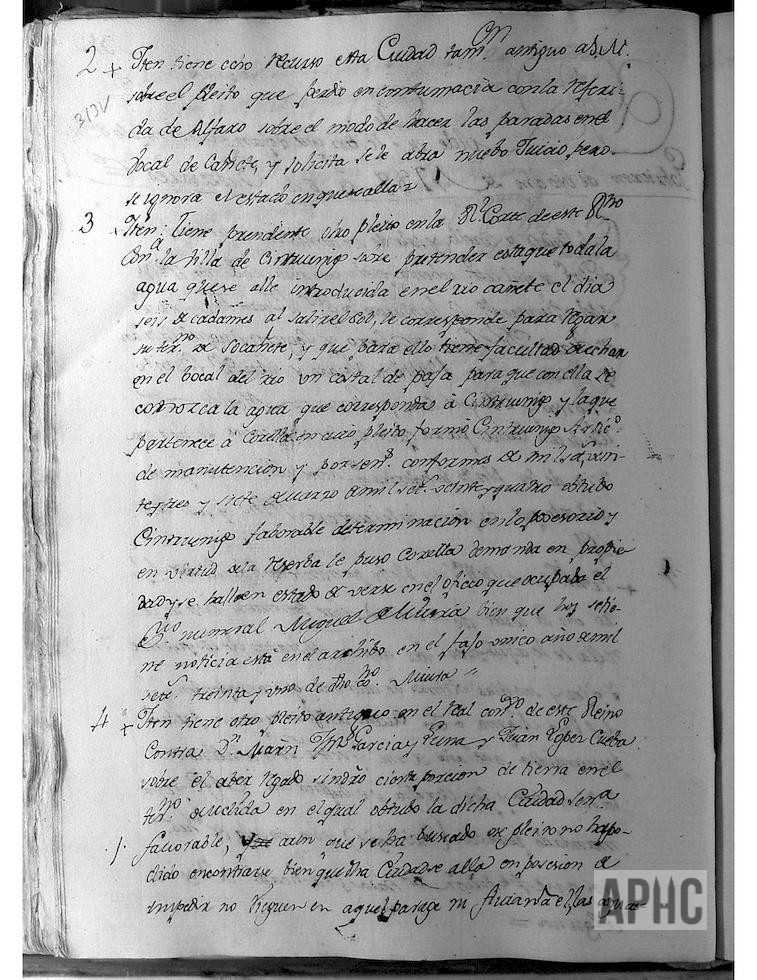 2 + Iten tiene otro recurso esta Ciudad tamn. antiguo a S. M.
sobre el pleito que perdio en contumacia con la referi-
313V
da de Alfaro sobre el modo de hacer las paradas en el
bocal de Cañete, y solicita se le abra nuebo Juicio, pero
se ignora el estado en que se alla =
3 + Iten: tiene pendiente otro pleito en la Rl. Corte de este Rno
con la Villa de Cintruenigo sobre pretender esta que toda la
agua que se alle introducida en el rio cañete el dia
seis de cada mes al salir el sol, le corresponde para regar
su termno de Socañete, y que para ello tiene facultad de echar
en el bocal del rio un costal de paja para que con ella se
conozca la agua que corresponda à Cintruenigo y la que
pertenece à Corella en cuio pleito formò Cintruenigo Artic.o
de manutencion y por sens. conformes de mil setz. vein-
te y tres y siete de marzo de mil setz. veinte y quatro obtubo
Cintruenigo faborable determinacion en lo posesorio y
en virtud de la reserba le puso Corella demanda en propie
dad y se halla en estado de verse en el oficio que ocupaba el
Sno numeral Miguel de Miura bien que hoy se tie-
ne noticia està en el archibo en el fajo unico año de mil
setz. treinta y uno de dho Sno. Miura =
4 + Iten tiene otro pleito antiguo en el Real consjo de este Reino
Contra Dn. Martin Garcia y Luna y Juan Lopez Cueba
sobre el aber regado sin dro cierta porcion de tierra en el
termno de en el qual obtubo la dicha Ciudad sena
.1. favorable, aun que se ha buscado ese pleito no ha po-
dido encontrarse bien que dha Ciudad se alla en posesion de
impedir no rieguen en aquel parage ni con el, las aguas
APHC